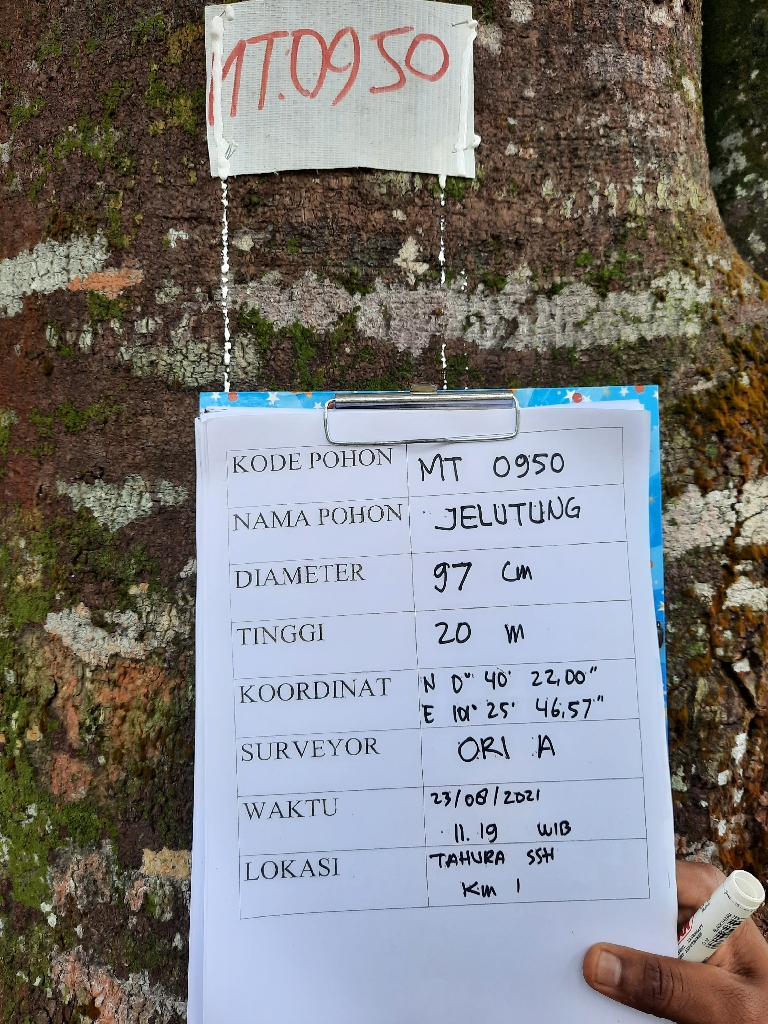 MT.0950
KODE POHON MT 0950
NAMA POHON JELUTUNG
DIAMETER 97 cm
TINGGI 20 m
KOORDINAT N 0° 40' 22,00"
E 101° 25' 46,57"
SURVEYOR ORI A
WAKTU 23/08/2021
11.19 WIB
LOKASI TAHURA SSH
Km 1